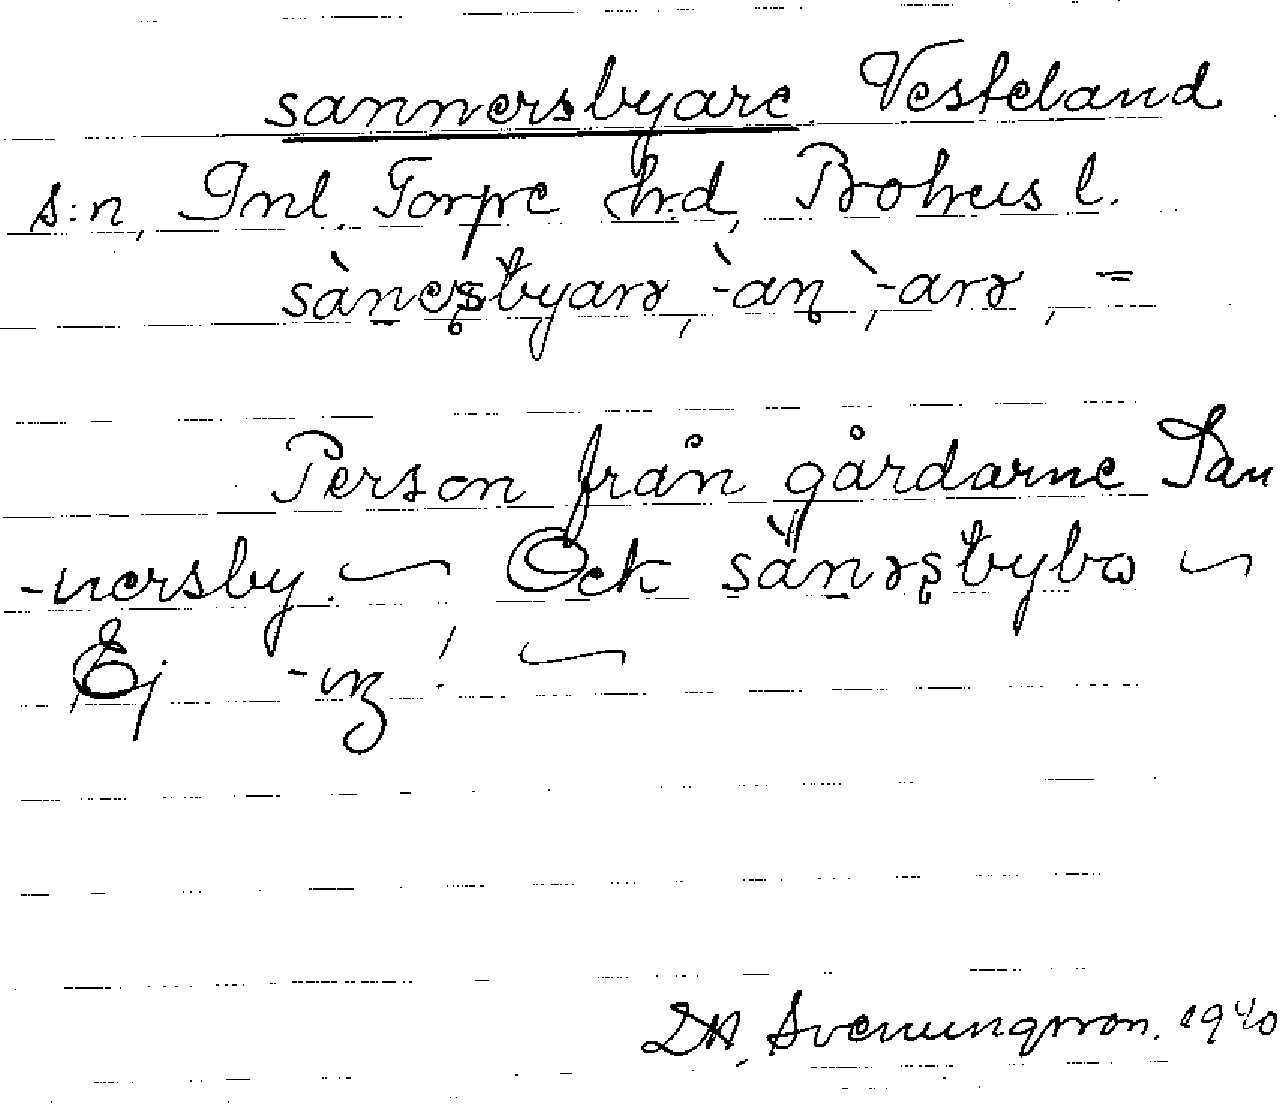 sannersbyare Vesteland
s:n, Inl. Torpe h:d, Bohus l.
sàneʂbyarə, -̀aɳ, -̀arə, =
Person från gårdarne San
-nersby. ~ Ock sànəʂbybo ~
Ej -ɪŋ! ~
D.A. Svenungsson. 1940